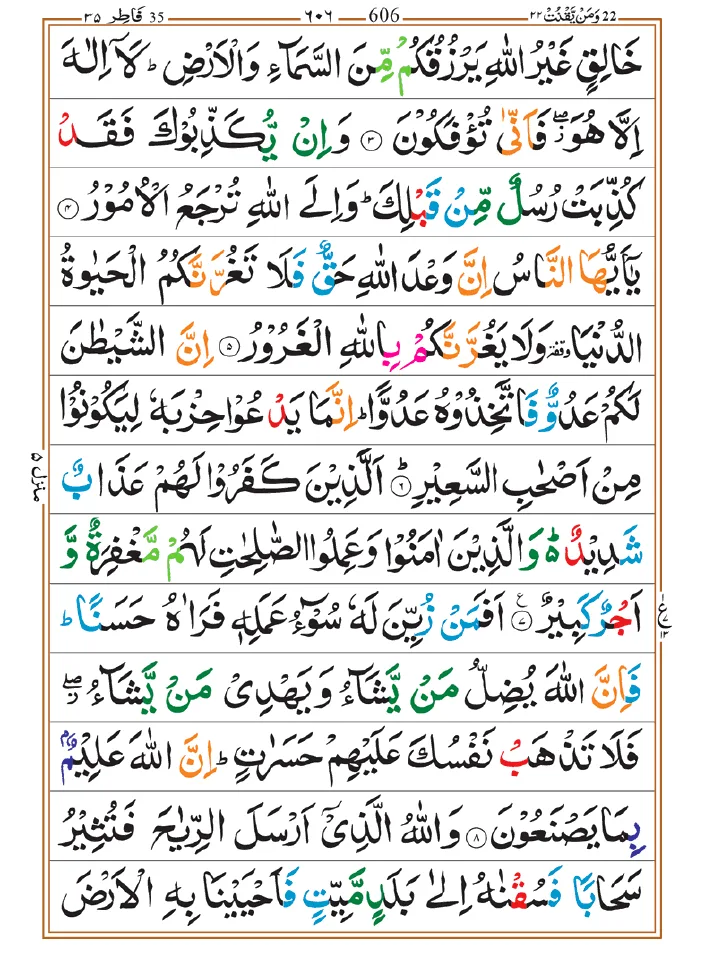 22 وَمَنْ يَّقْنُتْ ٢٢ 606 ٦٠٦ 35 فَاطِر ٣٥
خَالِقٍ غَيْرُ اللّٰهِ يَرْزُقُكُمْ مِّنَ السَّمَآءِ وَالْاَرْضِ ؕ لَاۤ اِلٰهَ
اِلَّا هُوَ ۖؗ فَاَنّٰى تُؤْفَكُوْنَ ۝٣ وَاِنْ يُّكَذِّبُوْكَ فَقَدْ
كُذِّبَتْ رُسُلٌ مِّنْ قَبْلِكَ ؕ وَاِلَى اللّٰهِ تُرْجَعُ الْاُمُوْرُ ۝٤
يٰۤاَيُّهَا النَّاسُ اِنَّ وَعْدَ اللّٰهِ حَقٌّ فَلَا تَغُرَّنَّكُمُ الْحَيٰوةُ
الدُّنْيَا وقفة وَلَا يَغُرَّنَّكُمْ بِاللّٰهِ الْغَرُوْرُ ۝٥ اِنَّ الشَّيْطٰنَ
لَكُمْ عَدُوٌّ فَاتَّخِذُوْهُ عَدُوًّا ؕ اِنَّمَا يَدْعُوْا حِزْبَهٗ لِيَكُوْنُوْا
مِنْ اَصْحٰبِ السَّعِيْرِ ۝٦ؕ اَلَّذِيْنَ كَفَرُوْا لَهُمْ عَذَابٌ
منزل ٥
شَدِيْدٌ ؕ۬ وَالَّذِيْنَ اٰمَنُوْا وَعَمِلُوا الصّٰلِحٰتِ لَهُمْ مَّغْفِرَةٌ وَّ
اَجْرٌ كَبِيْرٌ ۝٧ۧ اَفَمَنْ زُيِّنَ لَهٗ سُوْٓءُ عَمَلِهٖ فَرَاٰهُ حَسَنًا ؕ
فَاِنَّ اللّٰهَ يُضِلُّ مَنْ يَّشَآءُ وَيَهْدِيْ مَنْ يَّشَآءُ ۖؗ
فَلَا تَذْهَبْ نَفْسُكَ عَلَيْهِمْ حَسَرٰتٍ ؕ اِنَّ اللّٰهَ عَلِيْمٌۢ
بِمَا يَصْنَعُوْنَ ۝٨ وَاللّٰهُ الَّذِيْۤ اَرْسَلَ الرِّيٰحَ فَتُثِيْرُ
سَحَابًا فَسُقْنٰهُ اِلٰى بَلَدٍ مَّيِّتٍ فَاَحْيَيْنَا بِهِ الْاَرْضَ